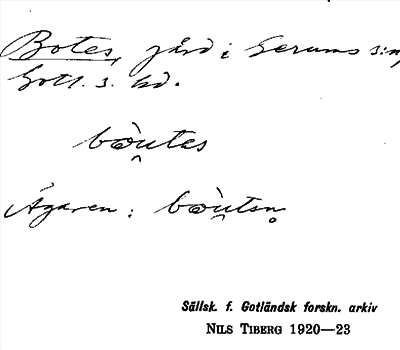 Botes, gård i Gerums s:n,
Gotl. s. hd.
bo̯ùtes
Ägaren: bo̯ùtsn̥
Sällsk. f. Gotländsk forskn. arkiv
NILS TIBERG 1920—23